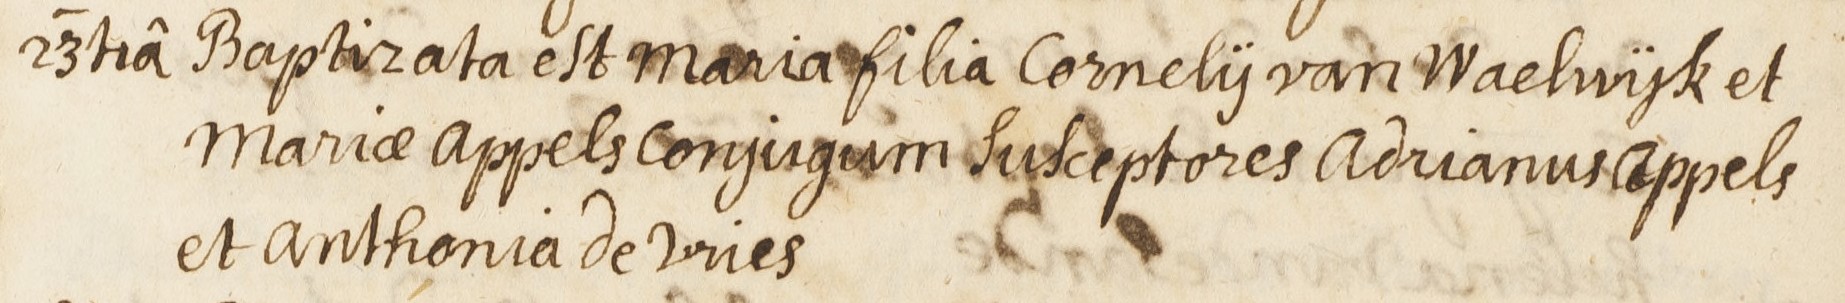 23tiâ Baptizata est Maria filia Cornelÿ van Waelwÿk et
Mariæ Appels Conjugum Susceptores Adrianus Appels
et Anthonia de Vries